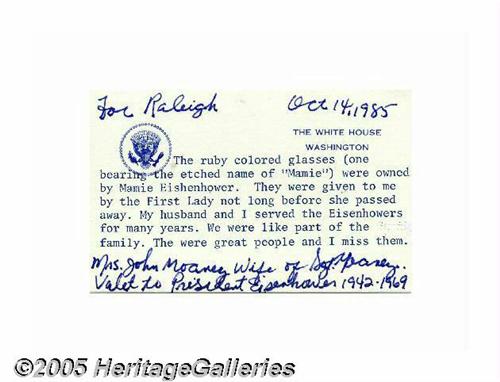 For Raleigh Oct 14, 1985
THE WHITE HOUSE
WASHINGTON
The ruby colored glasses (one
bearing the etched name of "Mamie") were owned
by Mamie Eishenhower. They were given to me
by the First Lady not long before she passed
away. My husband and I served the Eisenhowers
for many years. We were like part of the
family. The were great people and I miss them.
Mrs. John Moaney Wife of Sgt. Moaney.
Valet to President Eisenhower 1942-1969
©2005 HeritageGalleries